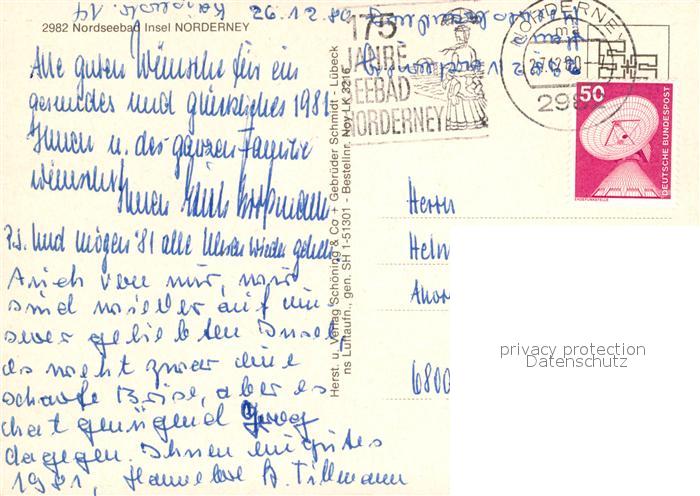 26.12.80
2982 Nordseebad Insel NORDERNEY
175
JAHRE
SEEBAD
NORDERNEY
NORDERNEY
298
50
DEUTSCHE BUNDESPOST
ERDEFUNKSTELLE
Alle guten Wünsche für ein
gesundes und glückliches 1981
Ihnen u. der ganzen Familie
wünscht Ihnen
P.S. Und mögen '81 alle wieder
Auch von mir, wir
sind wieder auf un
serer geliebten Insel,
es weht zwar eine
scharfe Brise, aber es
hat genügend
dagegen. Ihnen ein gutes
1981, Hannelore B. Tillmann
Herst. u. Verlag Schöning & Co + Gebrüder Schmidt - Lübeck
ns Luftaufn., gen. SH 1-51301 - Bestellnr. Noy LK 3216
Herrn
Helm
Ahor
6800
privacy protection
Datenschutz